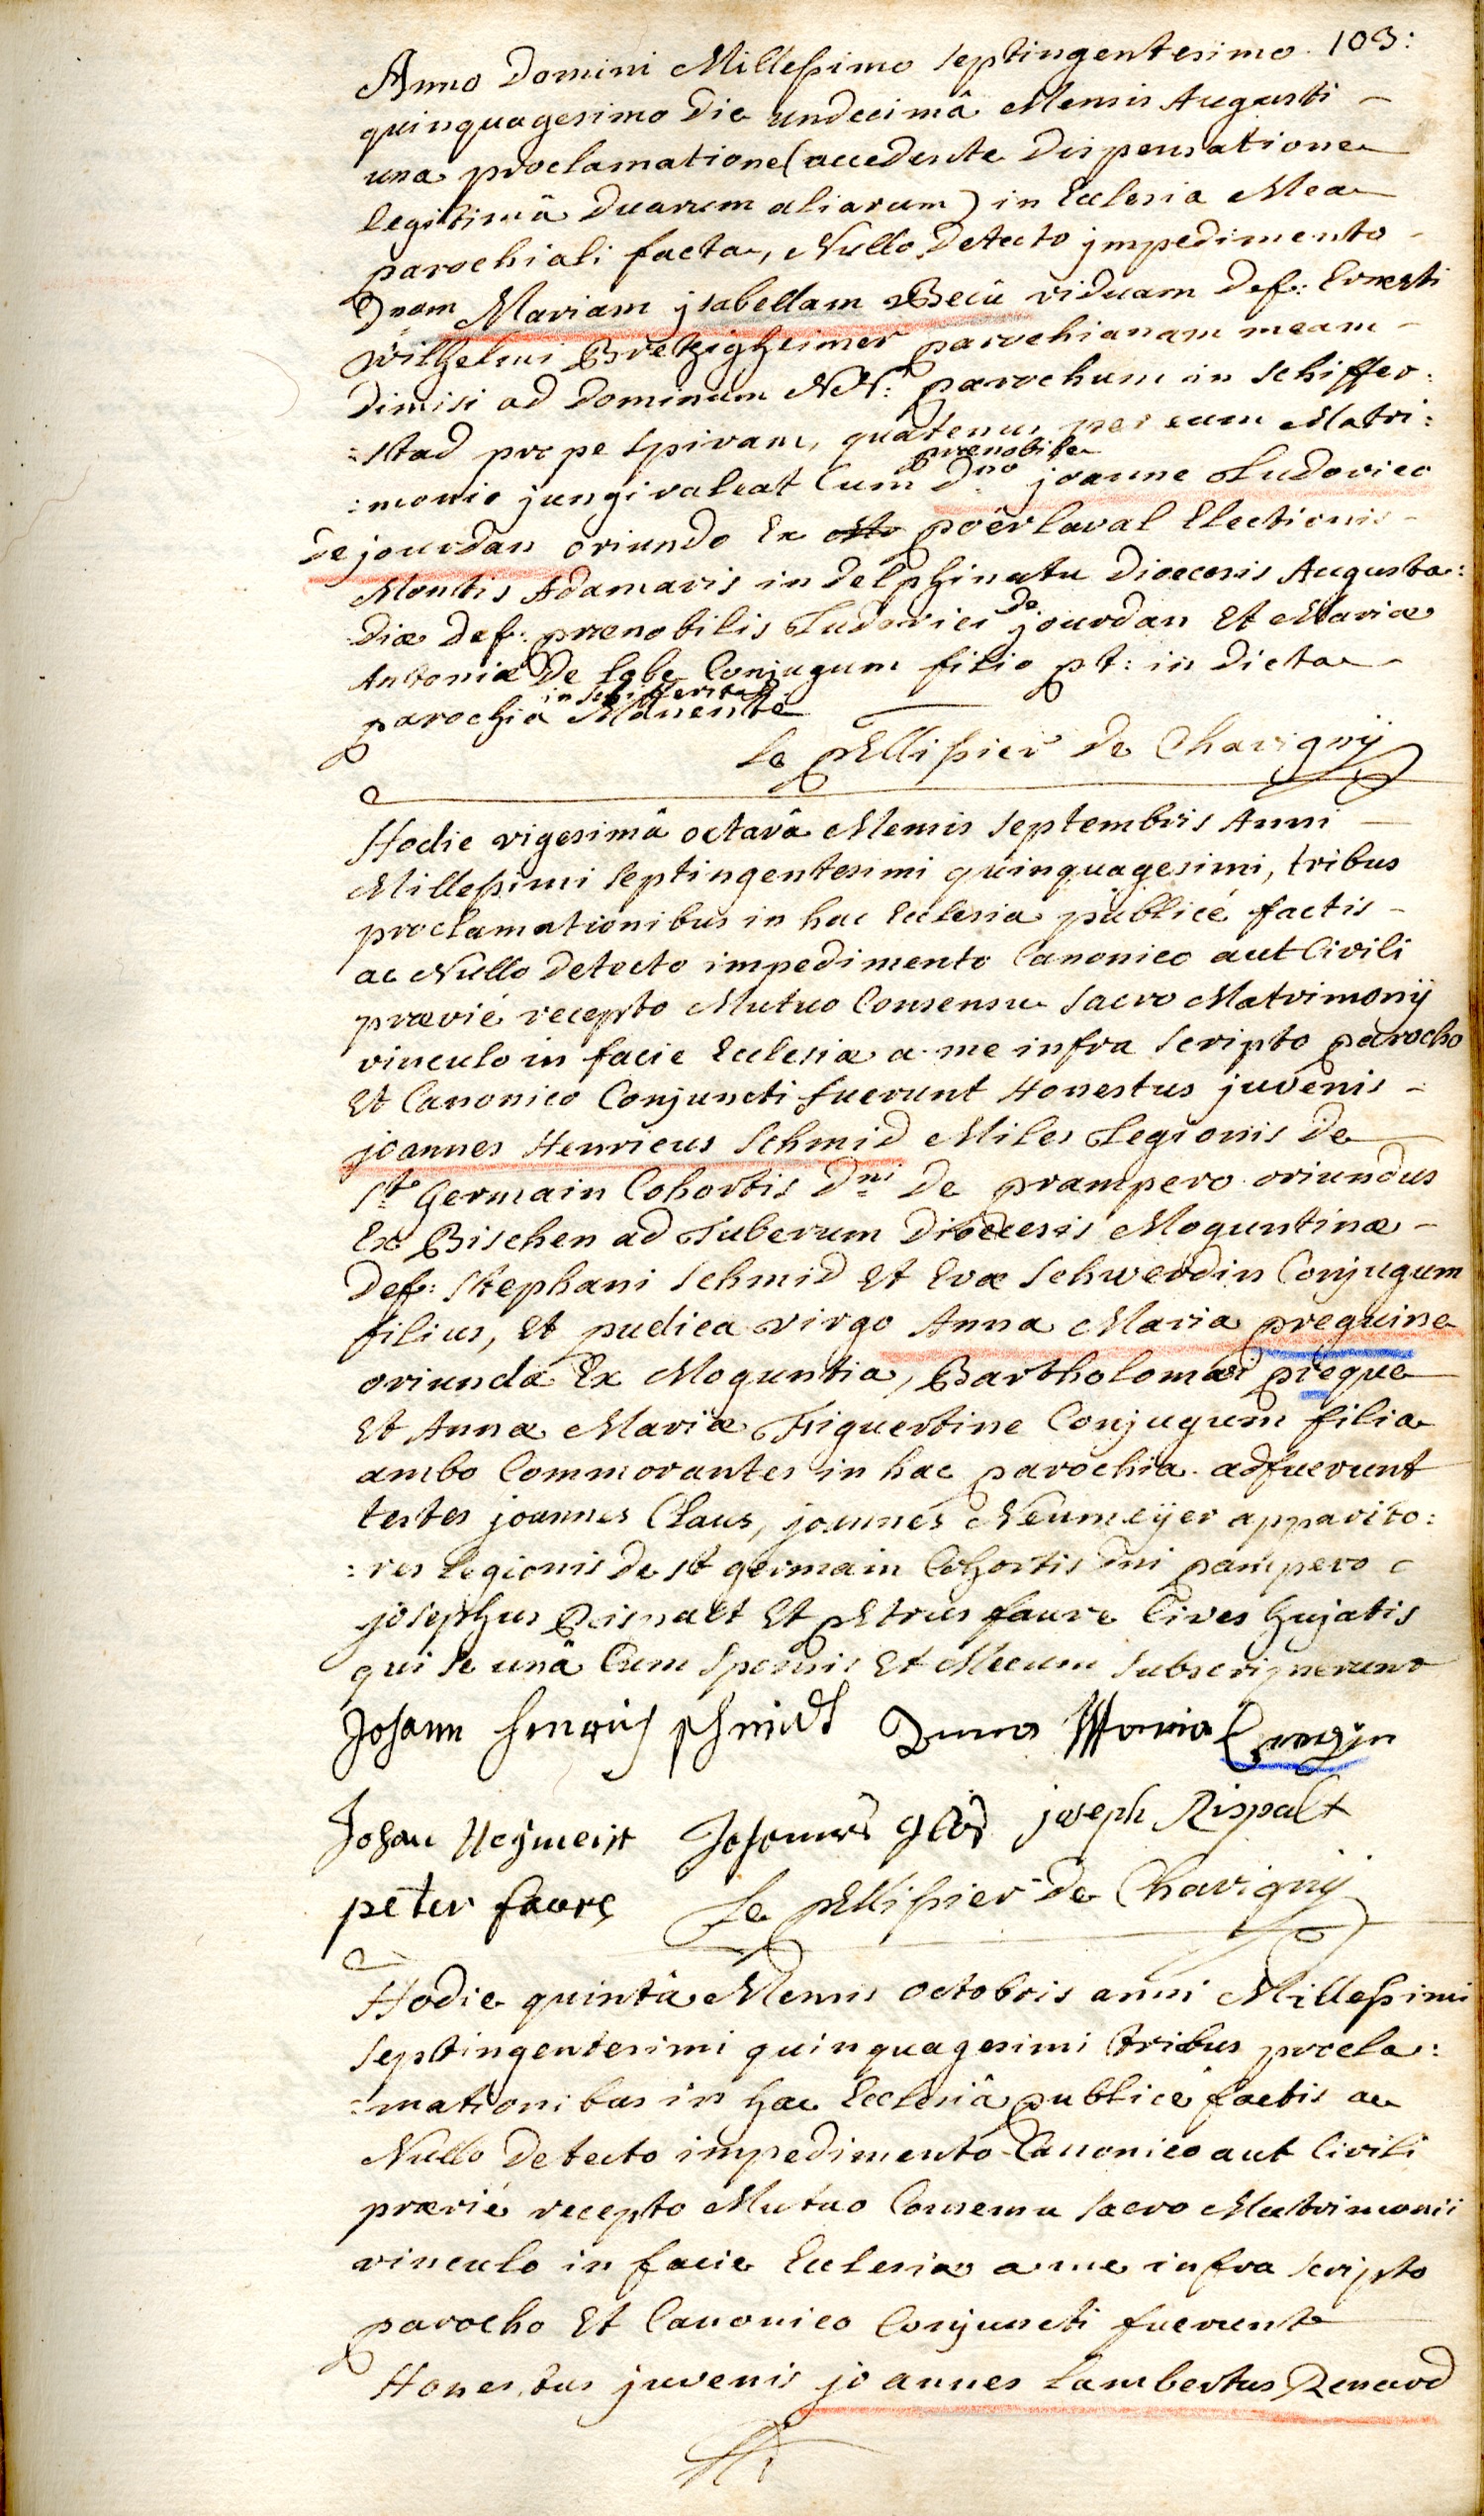 103:
Anno Domini Millessimo septingentesimo
quinquagesimo Die undecimâ Mensis Augusti –
una proclamatione (accedente Dispensatione
legitimâ Duarum aliarum) in Ecclesia Mea
parochiali facta, Nullo Detecto jmpedimento –
Dnam Mariam jsabellam Becü viduam Def: Ernesti
Wilhelmi Bretzigheimer parochianam meam –
Dimisi ad Dominum NN: parochum in schiffer:
:stad prope spiram, quatenus per eum Matri:
prænobile
:monio jungi valeat Cum Dno joanne Ludovico
De jourdan oriundo Ex poër laval Electionis –
Montis Adamaris in Delphinatu Dioecesis Augusta:
Diæ Def: prænobilis Ludovici De jourdan Et Mariæ
Antoniæ De labe Conjugum filio pt: in Dicta
in schifferstad
parochia Manente
Le pEllissier De Chavignÿ
Hodie vigesimâ octavâ Mensis septembris Anni –
Millessimi septingentesimi quinquagesimi, tribus
proclamationibus in hac Ecclesia publicé factis –
ac Nullo Detecto impedimento Canonico aut Civili
prævié recepto Mutuo Consensu sacro Matrimonÿ
vinculo in facie Ecclesiæ a me infra scripto parocho
Et Canonico Conjuncti fuerunt Honestus juvenis –
joannes Henricus Schmid Miles Legionis De
St Germain Cohortis Dni De prampero oriundus
Ex Bischen ad Tuberum Dioecesis Moguntinæ –
Def: Stephani Schmid Et Evæ Schwerdin Conjugum
filius, Et pudica virgo Anna Maria preguine
oriunda Ex Moguntia, Bartholomæi pregue
Et Annæ Mariæ Figuertine Conjugum filia
ambo Commorantes in hac parochia. adfuerunt
testes joannes Claus, joannes Neumeÿer apparito:
:res Legionis De st germain Cohortis Dni pampero
josephus Rispalt Et pEtrus faure Cives hujatis
qui se unâ Cum sponsis Et Mecum subscripserunt
Johann Henrich schmidt Anna Maria
Johan Joseph Rispalt
peter faure Le pEllissier De Chavignÿ
Hodie quintâ Mensis octobris anni Millessimi
septingentesimi quinquagesimi tribus procla:
:mationibus in hac Ecclesiâ publicé factis ac
Nullo Detecto impedimento Canonico aut Civili
prævié recepto Mutuo Consensu sacro Matrimonii
vinculo in facie Ecclesiæ a me infra scripto
parocho Et Canonico Conjuncti fuerunt
Honestus juvenis joannes Lambertus Renard